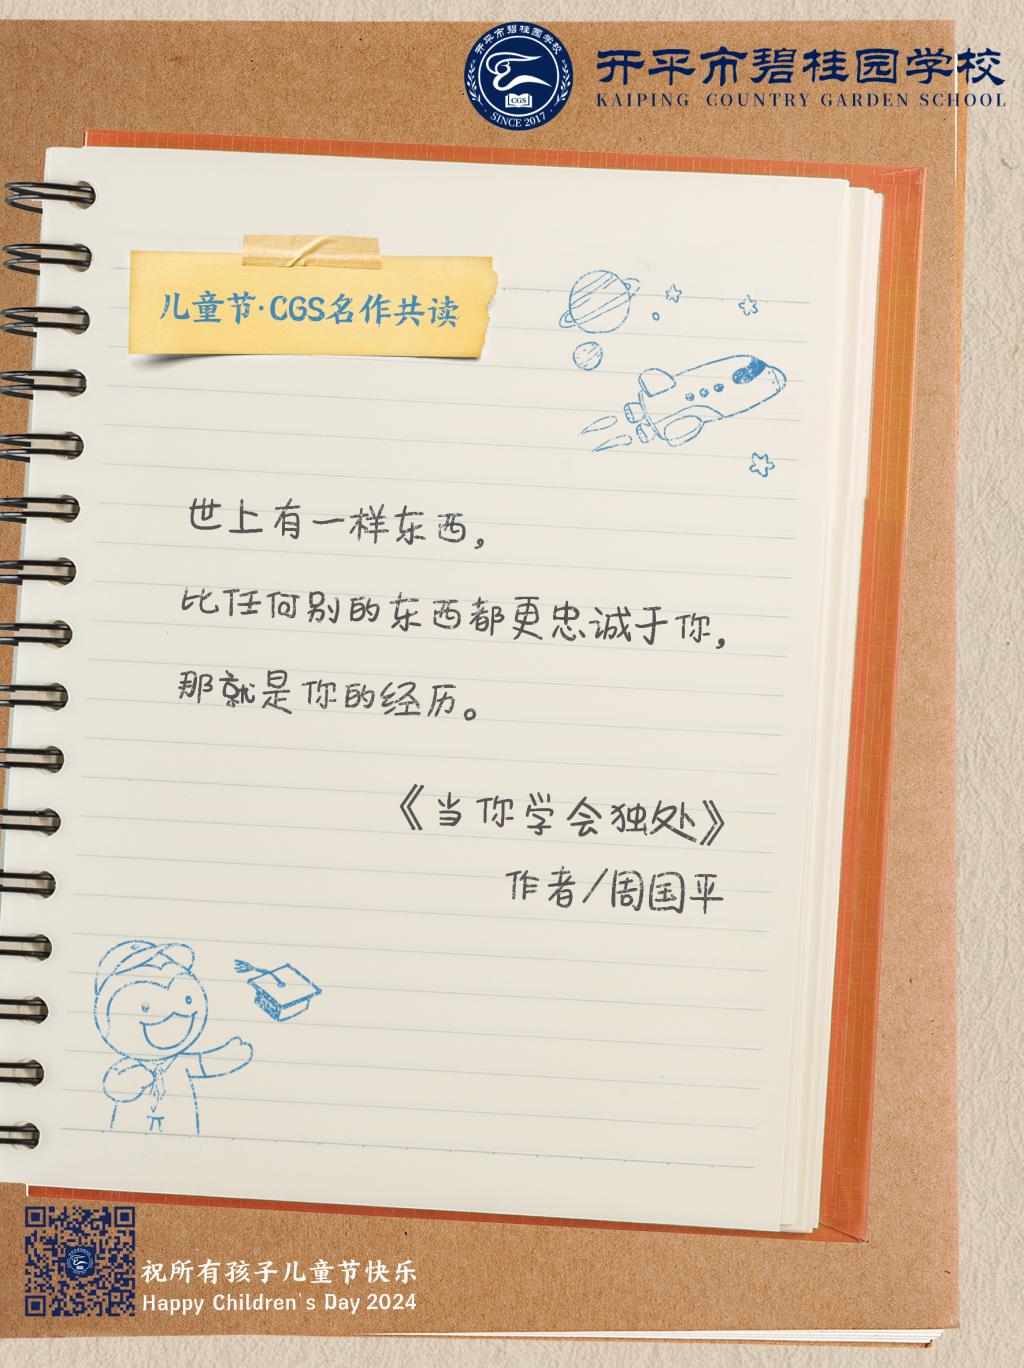 开平市碧桂园学校
CGS
SINCE 2017
开平市碧桂园学校
KAIPING COUNTRY GARDEN SCHOOL
儿童节·CGS名作共读
世上有一样东西，
比任何别的东西都更忠诚于你，
那就是你的经历。
《当你学会独处》
作者/周国平
祝所有孩子儿童节快乐
Happy Children's Day 2024